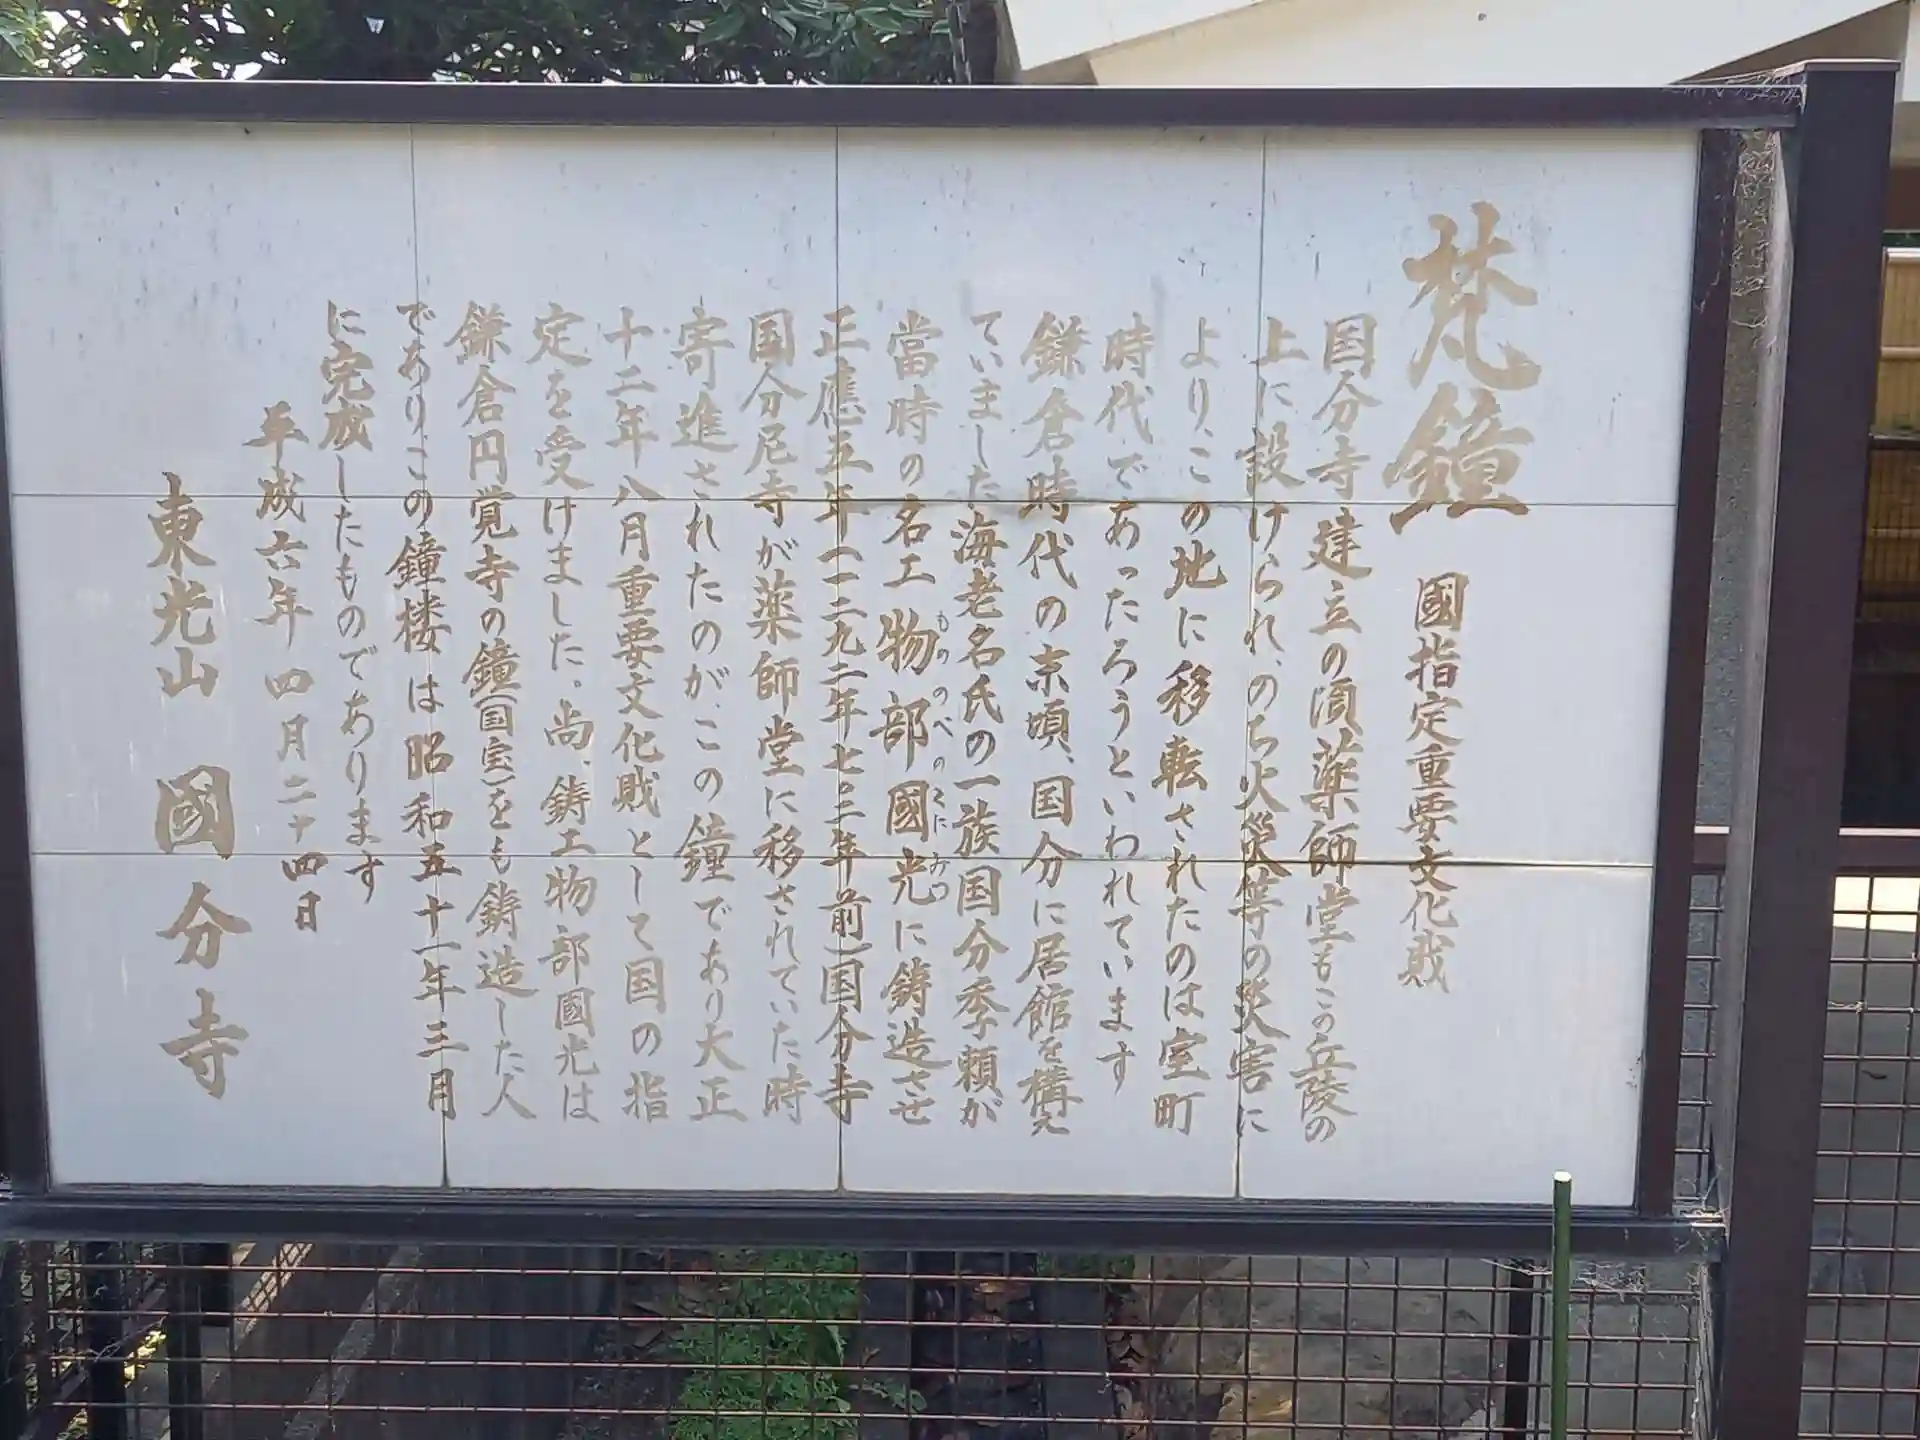 梵鐘 國指定重要文化財
国分寺建立の須薬師堂もこの丘陵の
上に設けられ、のち火災等の災害に
より、この地に移転されたのは室町
時代であったろうといわれています
鎌倉時代の末頃、国分に居館を構え
ていました海老名氏の一族国分季頼が
當時の名工物部國光に鋳造させ
もののべのくにみつ
正應五年(一二九二年七〇二年前)国分寺
国分尼寺が薬師堂に移されていた時
寄進されたのが、この鐘であり大正
十二年八月重要文化財として国の指
定を受けました。尚、鋳工物部國光は
鎌倉円覚寺の鐘(国宝)をも鋳造した人
でありこの鐘楼は昭和五十一年三月
に完成したものであります
平成六年四月二十四日
東光山 國分寺